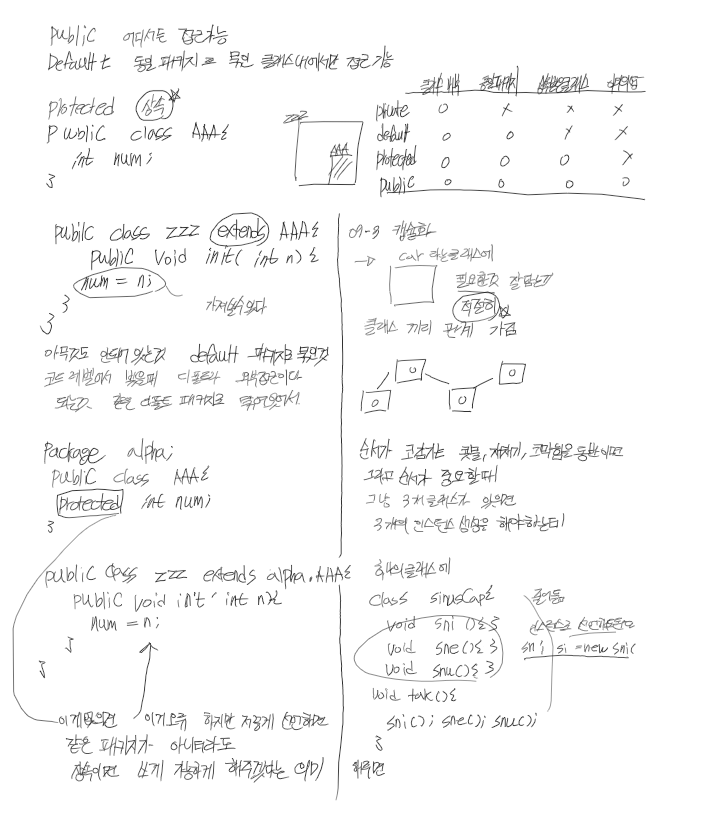 public 어디서든 접근가능
Default는 동일 패키지로 묶인 클래스 내에서만 접근 가능
protected 상속
public class AAA{
int num;
}
zzz
AAA
클래스 내부 동일패키지 상속받은클래스 이외의영역
private O X X X
default O O X X
protected O O O X
public O O O O
public class zzz extends AAA{
public void init( int n) {
num = n;
}
}
가져올수있다
아무것도 안돼있는것 default 패키지로 묶인것
코드 레벨에서 봤을때 디폴트라 외부접근이다
되는것. 같은 디폴트 패키지로 묶여있어서.
package alpha;
public class AAA{
protected int num;
}
public class zzz extends alpha.AAA{
public void init int n){
num = n;
}
}
이게없으면 이거오류 하지만 저렇게 선언하면
같은 패키지가 아니더라도
상속이면 쓰게 가능하게 해주겠다는 의미
09-3 캡슐화
→ car 라는클래스에
필요한것 잘담는가
적절히
클래스 끼리 관계 가짐
O O O O
순서가 코감기는 콧물, 재채기, 코막힘을 동반이면
그리고 순서가 중요할때
그냥 3개 클래스가 있으면
3개의 인스턴스 생성을 해야하는데
하나의클래스에
class sinusCap{
void sni (){ }
void sne(){ }
void snu(){ }
void take(){
sni(); sne(); snu();
}
해주면
줄어듬
인스턴스로 선언
sni si = new sni(